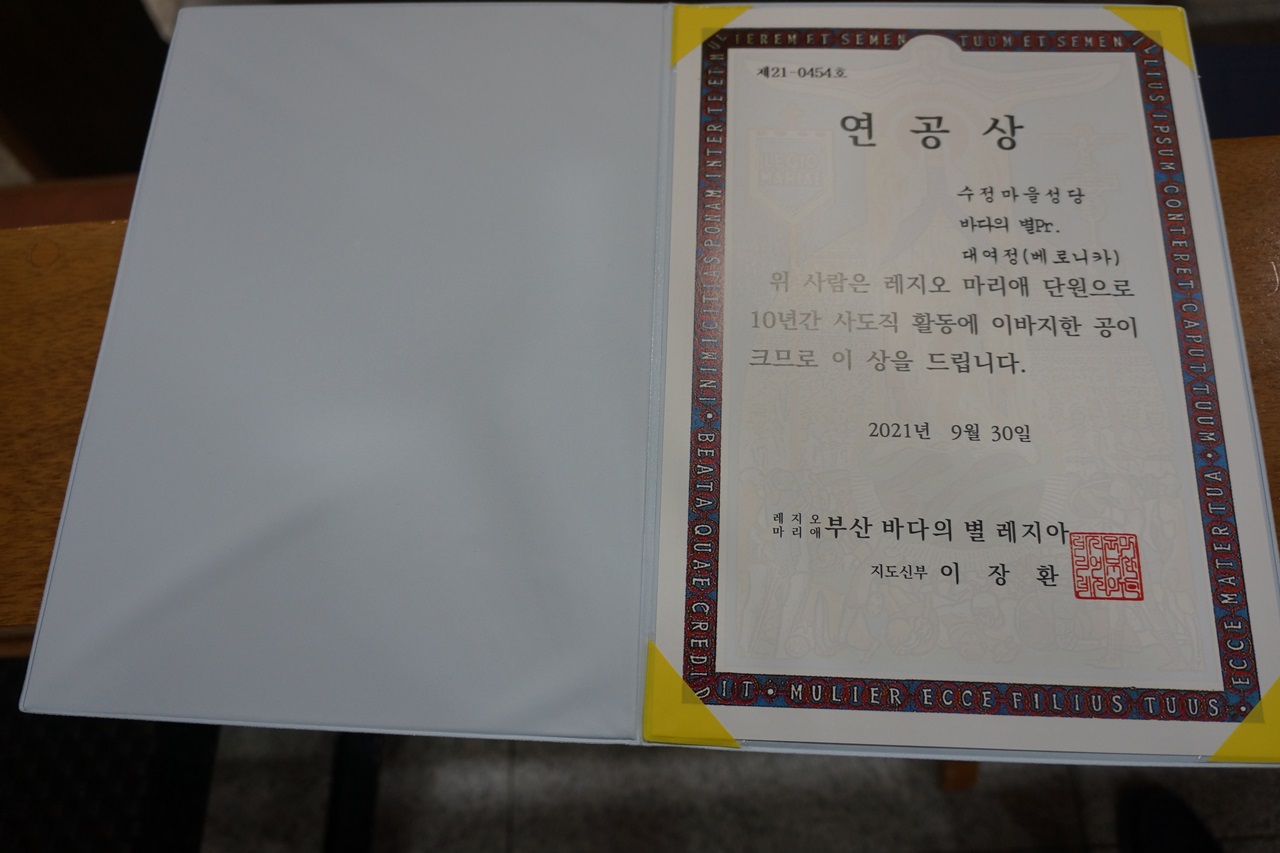 제21-0454호
연 공 상
수정마을성당
바다의 별Pr.
대여정(베로니카)
위 사람은 레지오 마리애 단원으로
10년간 사도직 활동에 이바지한 공이
크므로 이 상을 드립니다.
2021년 9월 30일
레지오
마리애 부산 바다의 별 레지아
지도신부 이 장 환
INIMICITIAS PONAM INTER TE ET MULIEREM ET SEMEN TUUM ET SEMEN ILLIUS IPSUM CONTERET CAPUT TUUM •
ECCE MATER TUA •
MULIER ECCE FILIUS TUUS •
BEATA QUAE CREDIDIT •
LEGIO
MARIAE